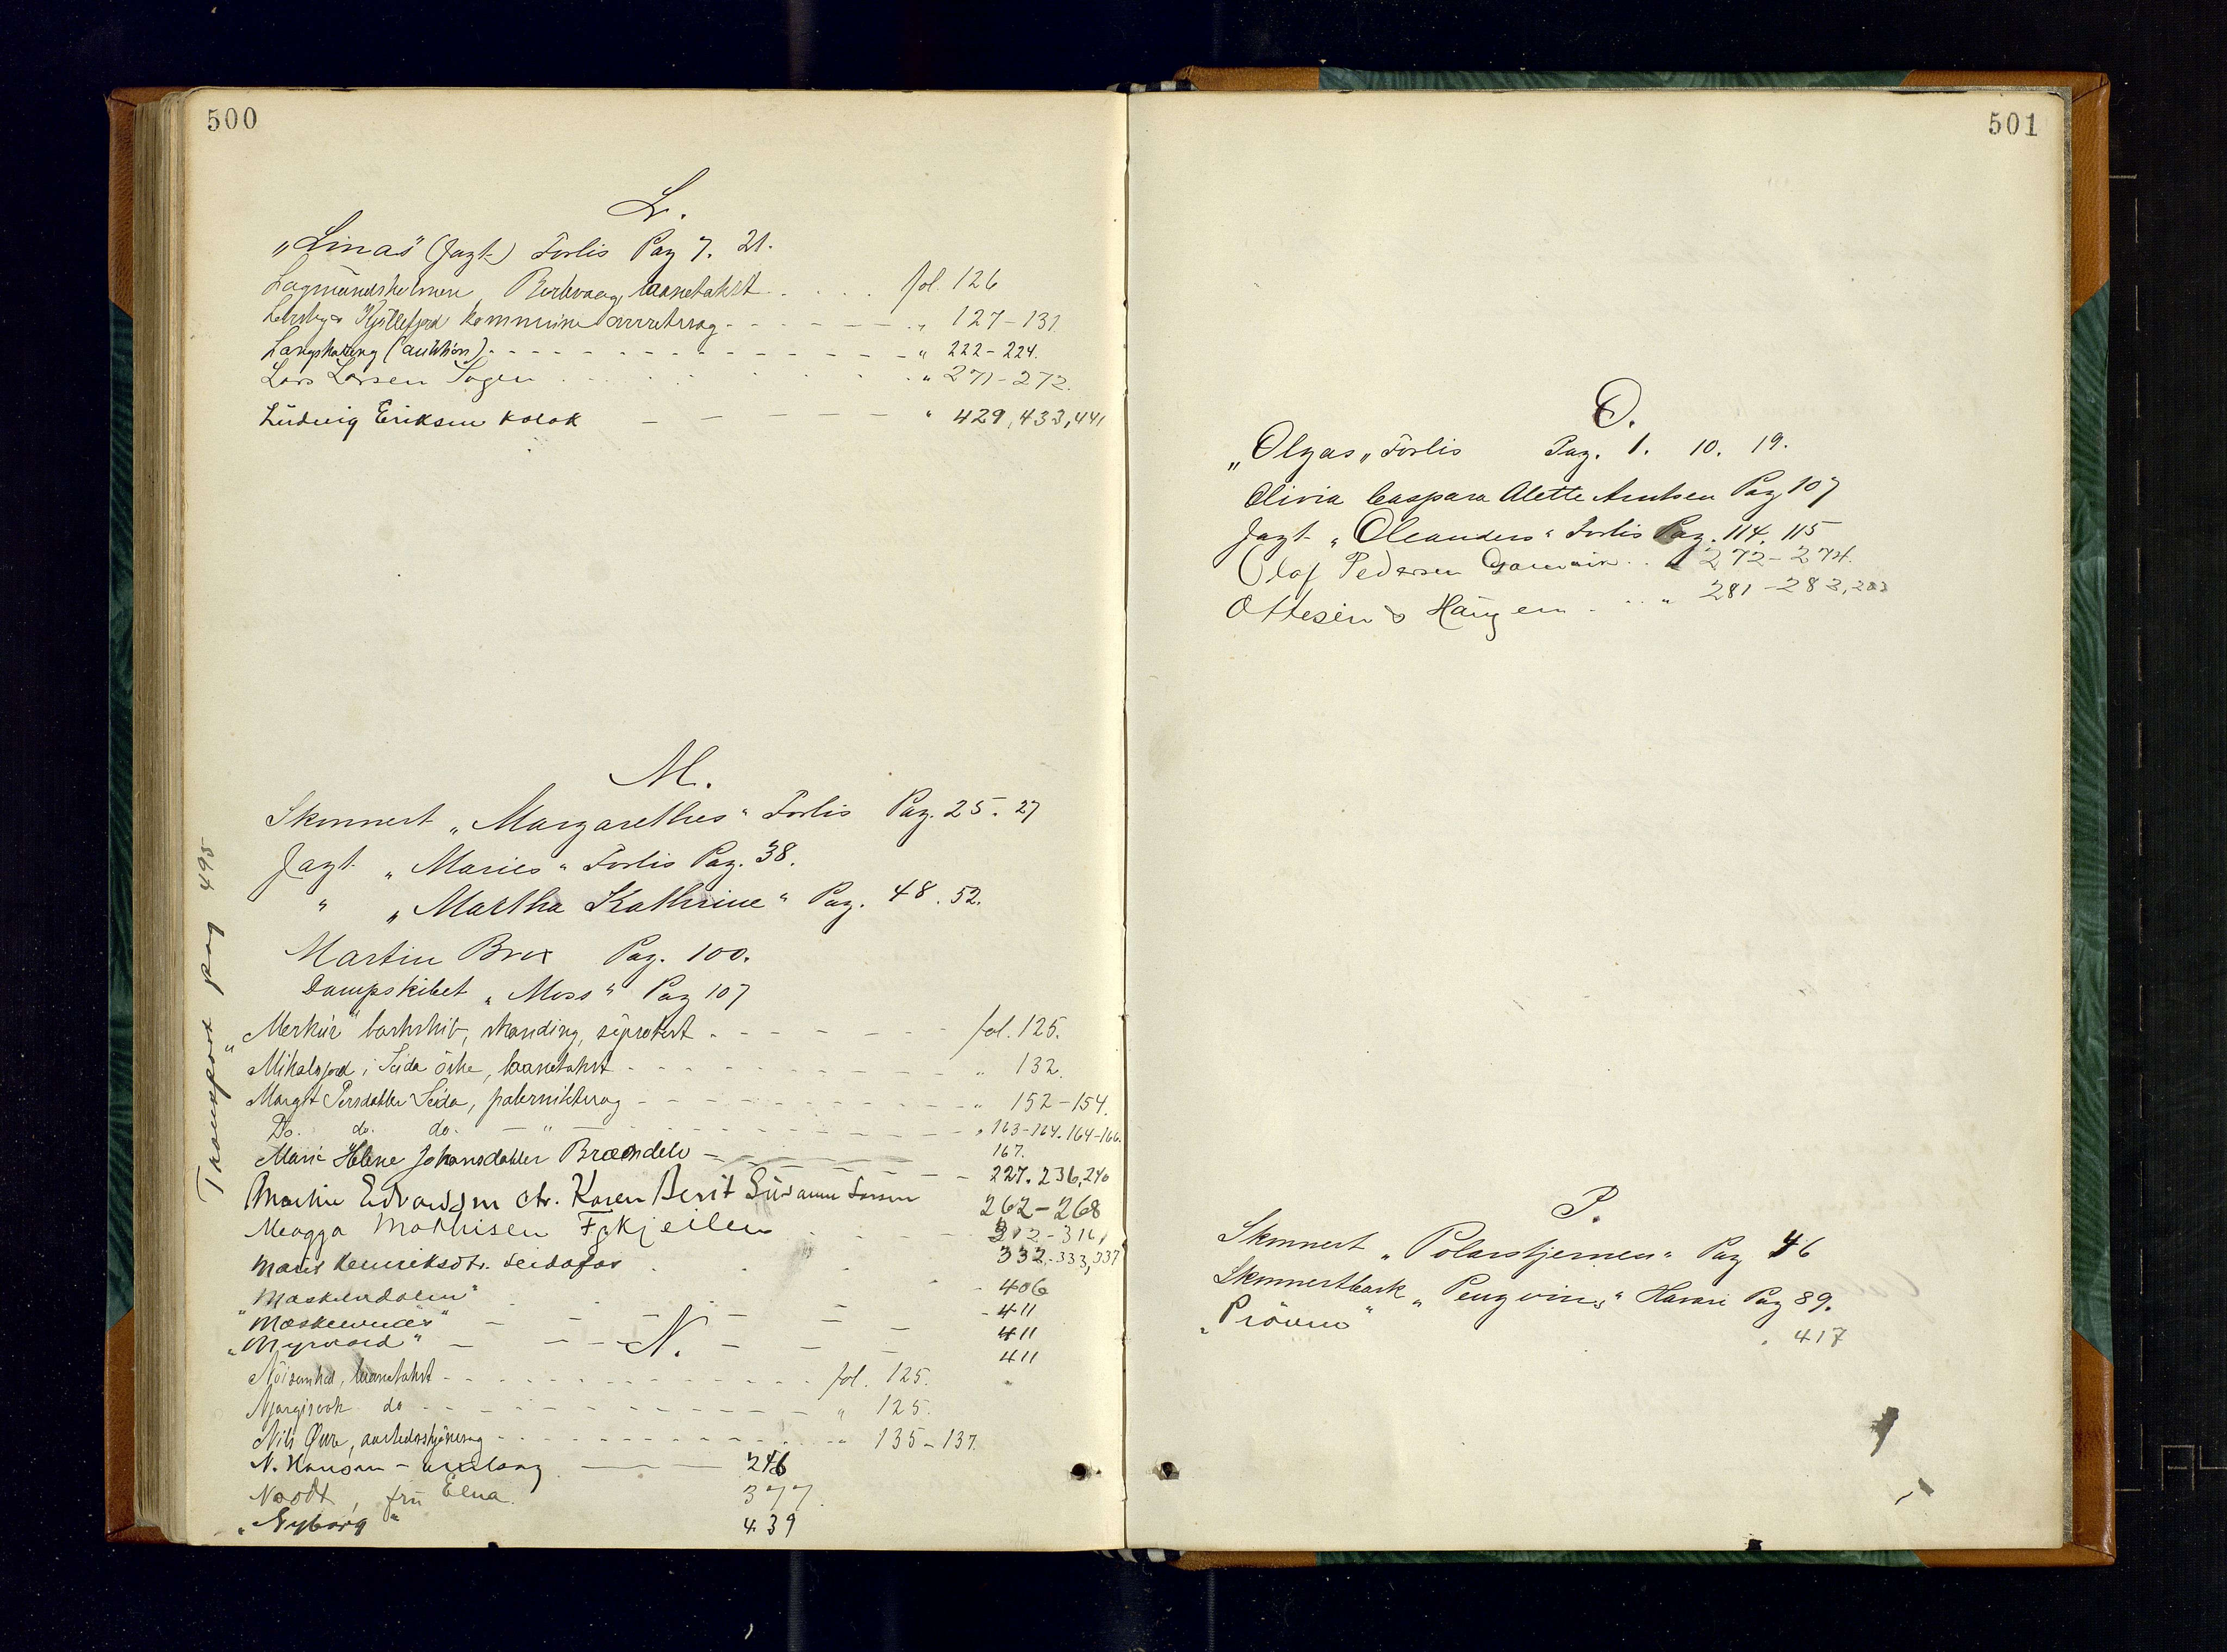 500
L.
„Linas" (Jagt) Forlis Pag 7. 21.
Lagmandsholmen, Berlevaag, laanetakst . . . . fol. 126
Lebesby & Kjøllefjord kommune - - - - " 127-131.
(auktion) - - - - - - " 222-224.
Lars Larsen . . . . . " 271-272.
Ludvig Eriksen Kolok — — — — " 429, 433, 441
M.
Skonnert „Margarethes" Forlis Pag. 25. 27
Jagt „Maries" Forlis Pag. 38.
" „Martha Kathrine" Pag. 48. 52.
Martin Brox Pag. 100.
Dampskibet „Moss" Pag 107
„Merkür" barkskib, stranding, söprotest - - - - fol. 125.
i Seida laanetakst - - - - " 132.
Margit Persdatter Seida, paternitetssag - - - - " 152-154.
Do. do. do. — " — - - - - " 163-164. 164-166.
Marie Helene Johansdatter Brændelv - - - - 167.
- 227. 236, 240
Martin Edvardsen ctr. Karen Berit Susanne Larsen 262-268
Magga Mathisen . . . . 312-316,
Marit Henriksdtr. Seidafos . . . 332-333, 337
"Maskendalen" . . . - 406
" - 411
„Myrvard" — — — — 411
411
Transport pag 495
N.
Nöisomhed, laanetakst - - - - fol. 125.
do - - - - " 125.
Nils Øwre, - - - - " 135-137.
N. Hansen - ——— 246
Noodt, fru Elna. 377.
„Nyborg" 439
501
O.
„Olgas„ Forlis Pag. 1. 10. 19.
Olivia Caspara Alette Arntsen Pag 107
Jagt „Oleanders" Forlis Pag. 114. 115
Olaf Pedersen . . " 272-274.
Ottesen & Haugen . . . " 281-283, 283
P.
Skonnert „Polarstjernen" Pag 46
Skonnertbark „Pengvins" Havari Pag 89.
„Pröven" . 417